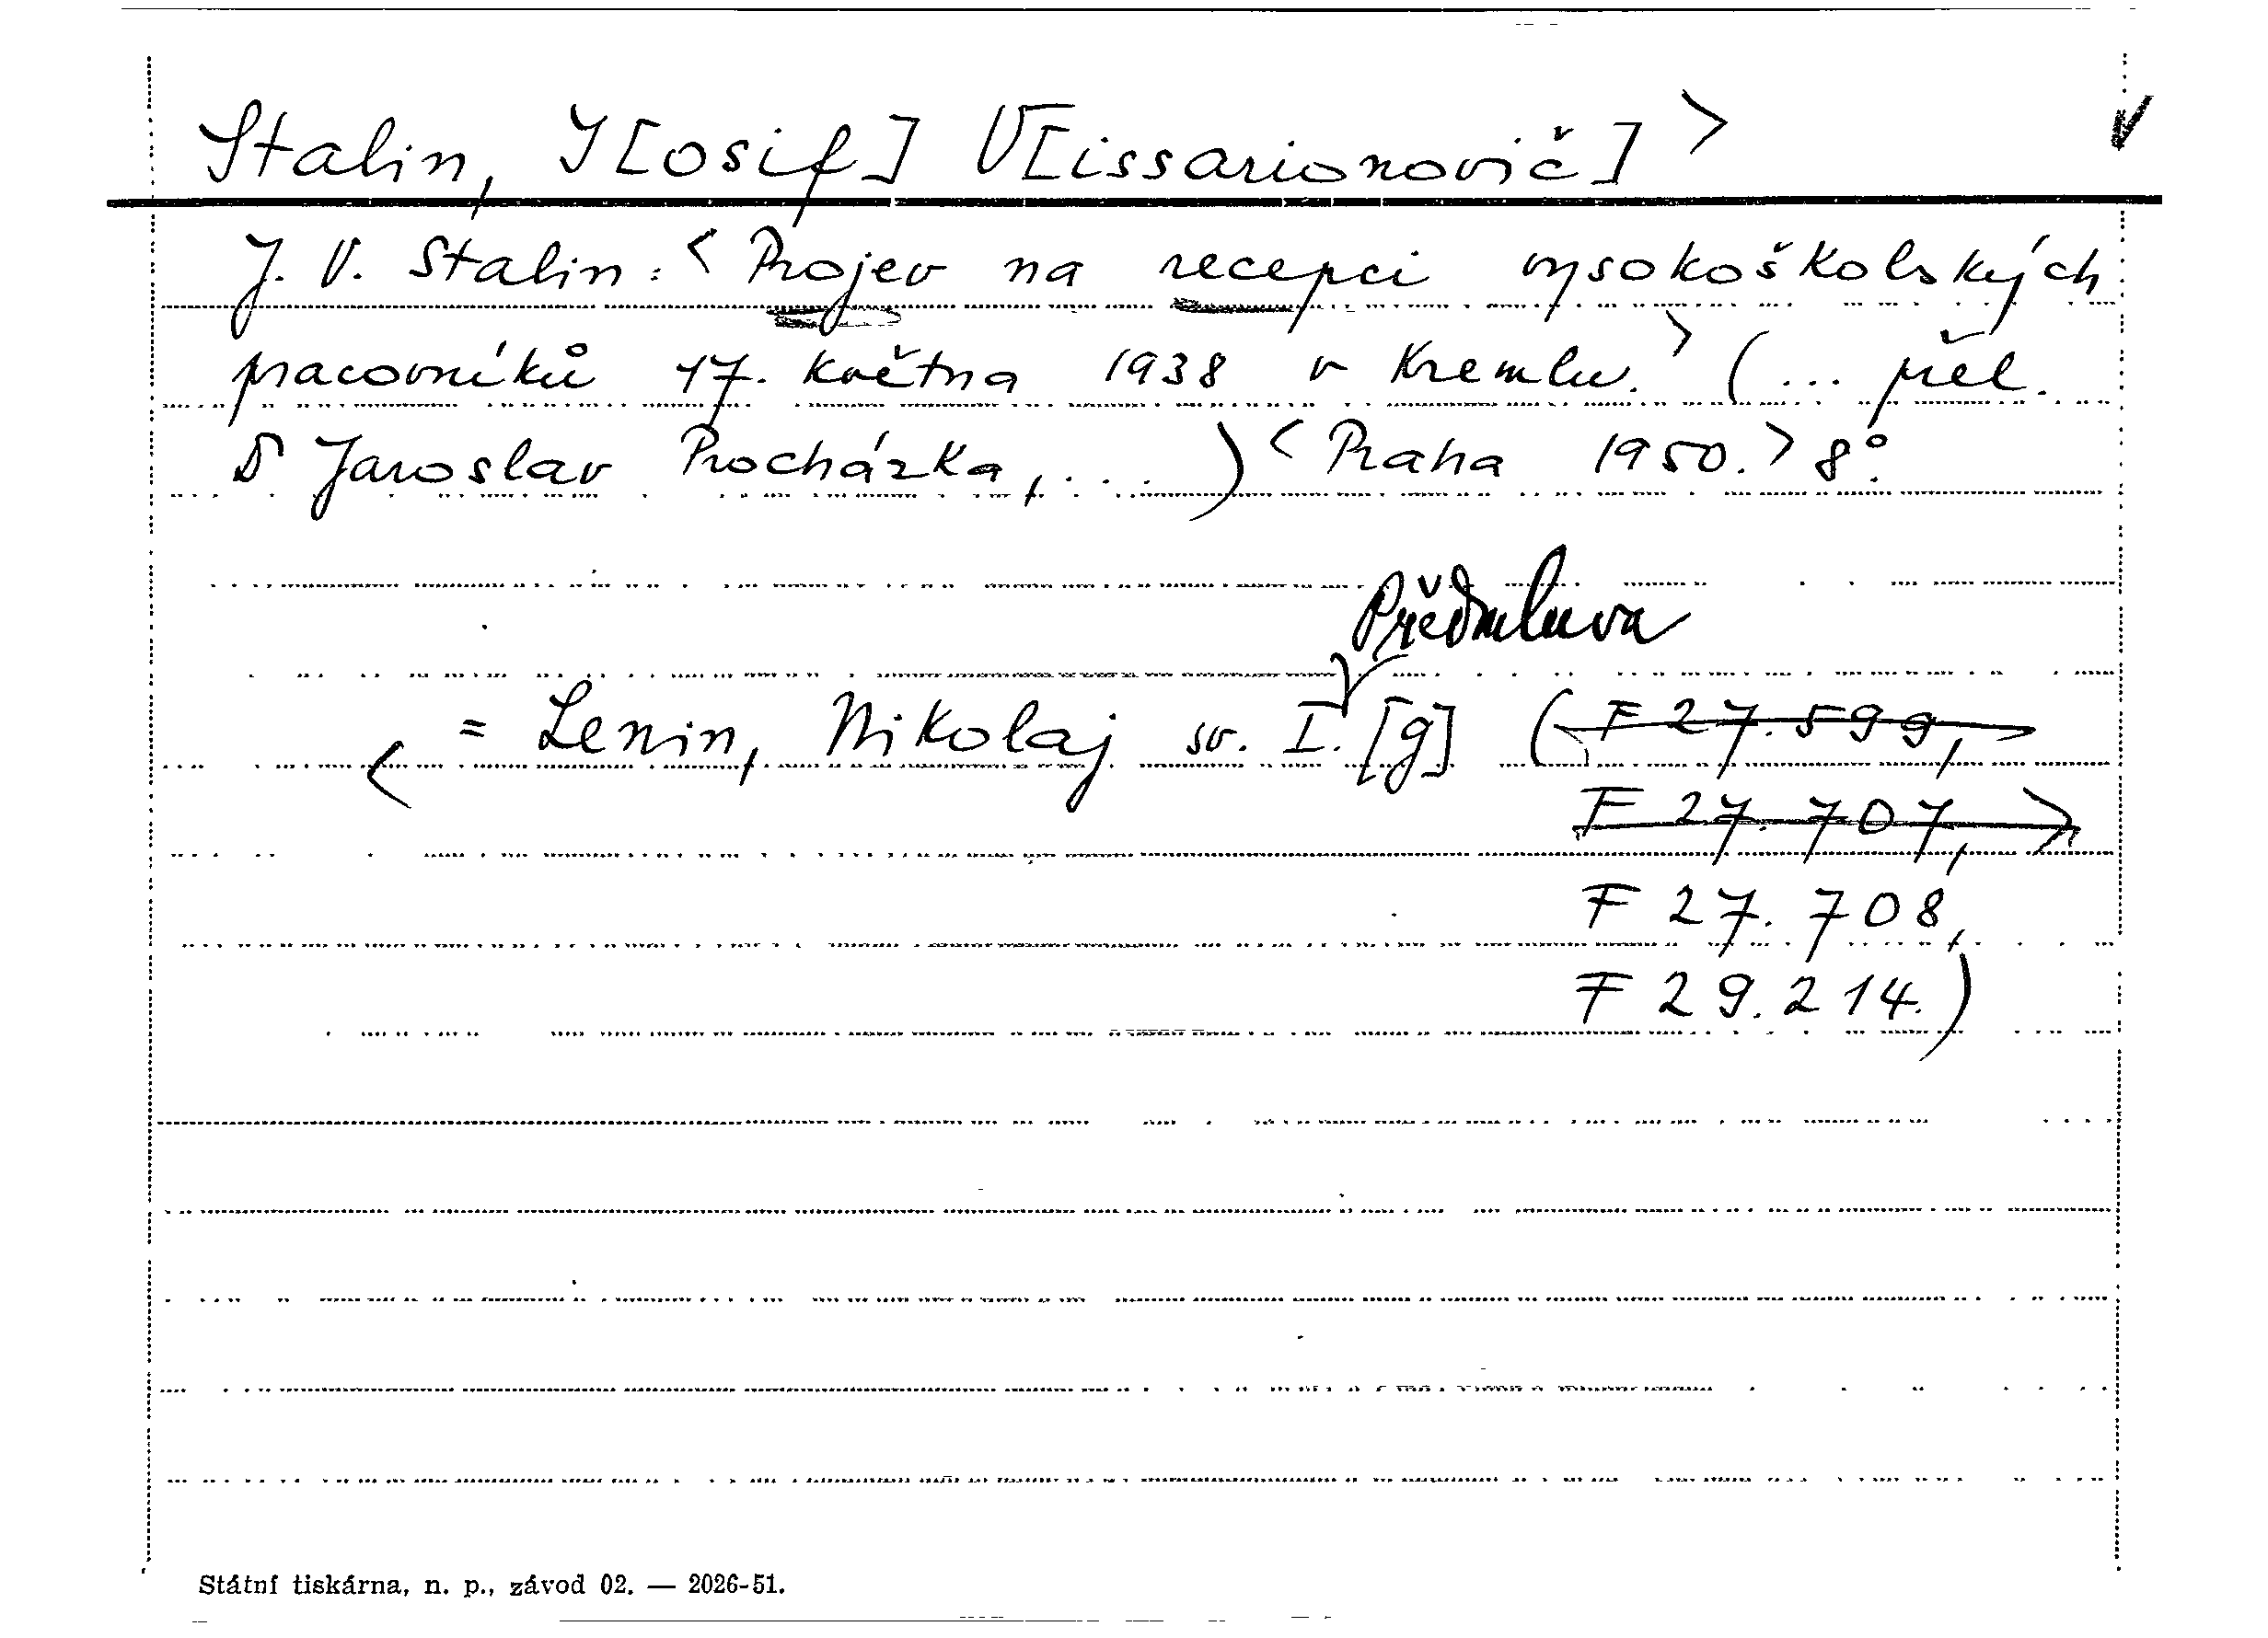 Stalin, J[osif] V[issarionovič] >
J. V. Stalin: < Projev na recepci vysokoškolských
pracovníků 17. května 1938 v Kremlu. > (... přel.
Dr Jaroslav Procházka, ...) < Praha 1950. > 8°.
Předmluva
< = Lenin, Nikolaj sv. I. [g] (F 27.599,
F 27.707, >
F 27.708,
F 29.214.)
Státní tiskárna, n. p., závod 02. — 2026-51.